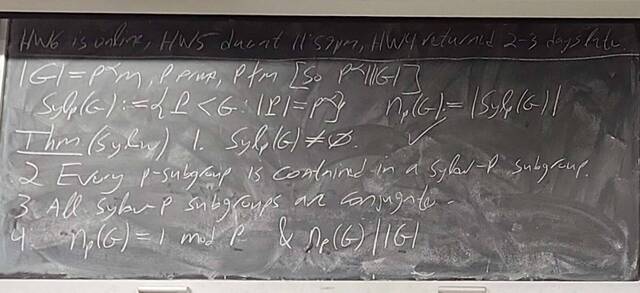 HW6 is online, HW5 due at 11:59pm, HW4 returned 2-3 days late.
|G| = p^α m, p prime, p∤m [So p^α || |G|]
Syl_p(G) := {P < G : |P| = p^α} n_p(G) = |Syl_p(G)|
Thm (Sylow) 1. Syl_p(G) ≠ ∅. ✓
2 Every p-subgroup is contained in a sylow-P subgroup.
3. All sylow-P subgroups are conjugate.
4. n_p(G) = 1 mod P & n_p(G) | |G|